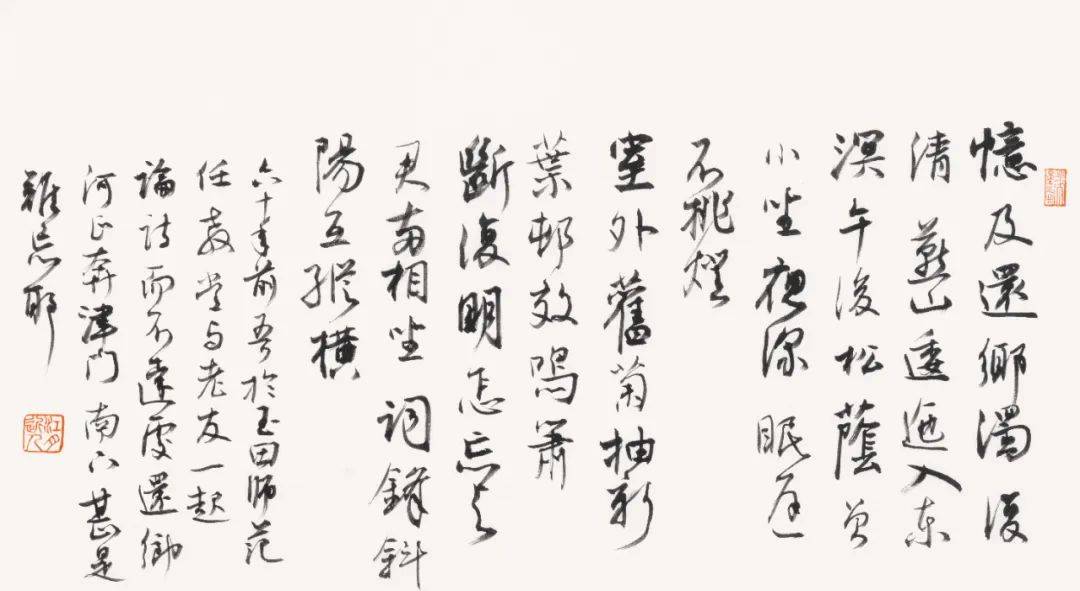 憶及還鄉濁復
清 燕山逶迤入東
溟 午後松蔭曾
小坐 夜深 眠
不挑燈
窗外舊菊抽新
葉 邨效鳴簫
斷復明 怎忘与
君 相坐 詞鋒斜
陽互縱橫
六十年前吾於玉田師范
任教 常与老友一起
論詩 而不遠處還鄉
河正奔津門 南下 甚是
難忘耶